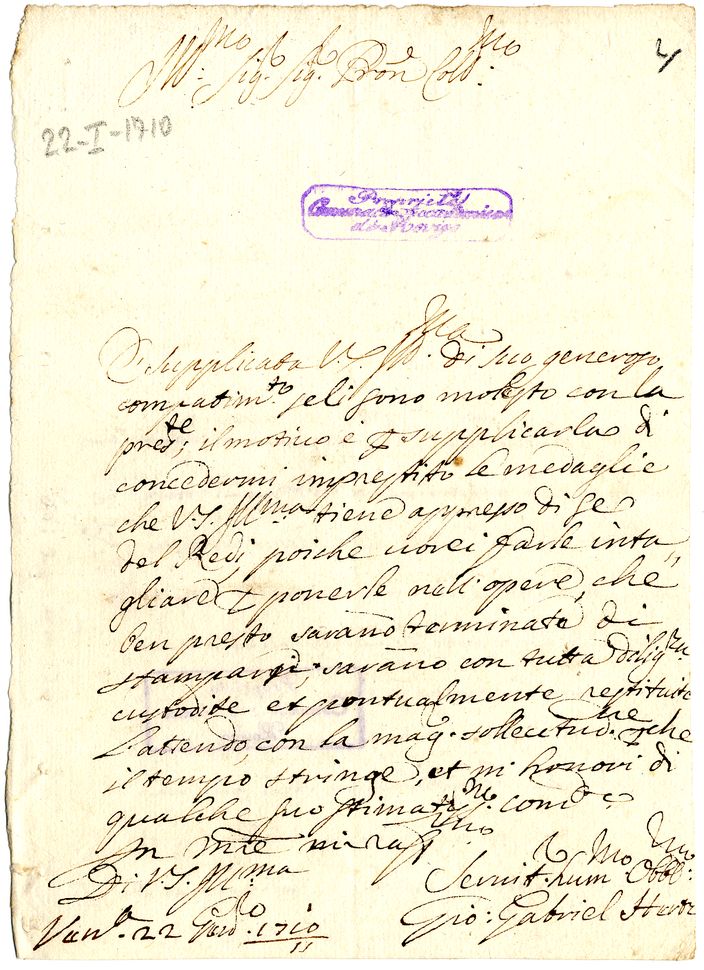 Ill.mo Sig.r Sig.r Pron Coll.mo
4
22-I-1710
Proprietà
Comunale Accademica
di Rovigo
È supplicata V.S. Ill.ma di suo generoso
compatim.to se li sono molesto con la
pres.te; il motivo è p supplicarla di
concedermi imprestito le medaglie
che V.S. Ill.ma tiene appresso di se
del Redi, poiche vorei farle inta
gliare p ponerle nell'opere, che
ben presto sarano terminate di
stamparsi, sarano con tutta dilig.za
custodite et pontualmente restituite
L'attendo, con la mag. sollecitud.ne p che
il tempo stringe, et mi honori di
qualche suo stimatis.mo com.do
In mie mi
Di V.S. Ill.ma
Servit.r hum.mo Obbl.mo
Ven.a 22 Gen.o 1710
Gio: Gabriel Hertz